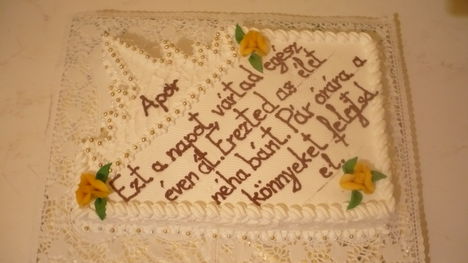 Apor
Ezt a napot vártad egész
éven át. Érezted az élet
néha bánt. Pár órára a
könnyeket felejtsd
el.